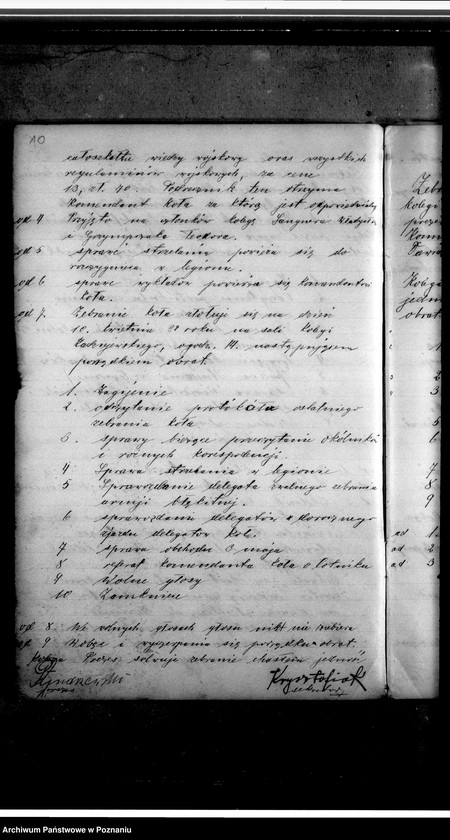 10
całokształtu wiedzy wojskowy oraz wszystkich
regulaminów wojskowych, za cenę
13, zł. 70. Podręcznik ten otrzyma
Komendant koła za który jest odpowiedzialny
od 4 Przyjęto na członków kolegę
i Teodora.
od 5 sprawę strzelania powieża się do
z legionu.
od 6 sprawę wykładów powieża się komendantowi
koła.
od 7. Zebranie koła się na dzień
10. kwietnia roku na sali kolegi
godz. 14. następującym
porządkiem obrad.
1. Zagajenie
2. odczytanie protokółu ostatniego
zebrania koła
3. sprawy bieżące przeczytanie okólników
i rocznych korespondencji.
4 Sprawa strzelania z legionie
5 Sprawozdanie delegata walnego zebrania
armji błękitnej.
6 sprawozdanie delegatów z dorocznego
zjazdu delegatów kół.
7 sprawa obchodu 3 maja
8 referat komendanta koła o lotnictwie
9 Wolne głosy
10 Zamknięcie
od 8 We wolnych głosach głosu nikt nie zabiera
od 9 Wobec wyczerpania się porządku obrad.
Kolega Prezes solwuje zebranie hasłem jedność
prezes
Krysztofiak
sekretarz
Zebr
kolegi
preze
Kome
Księga
jedn
obrad
1
2
3
5
6
7
8
9
ad 1.
ad 2
ad 3
Archiwum Państwowe w Poznaniu